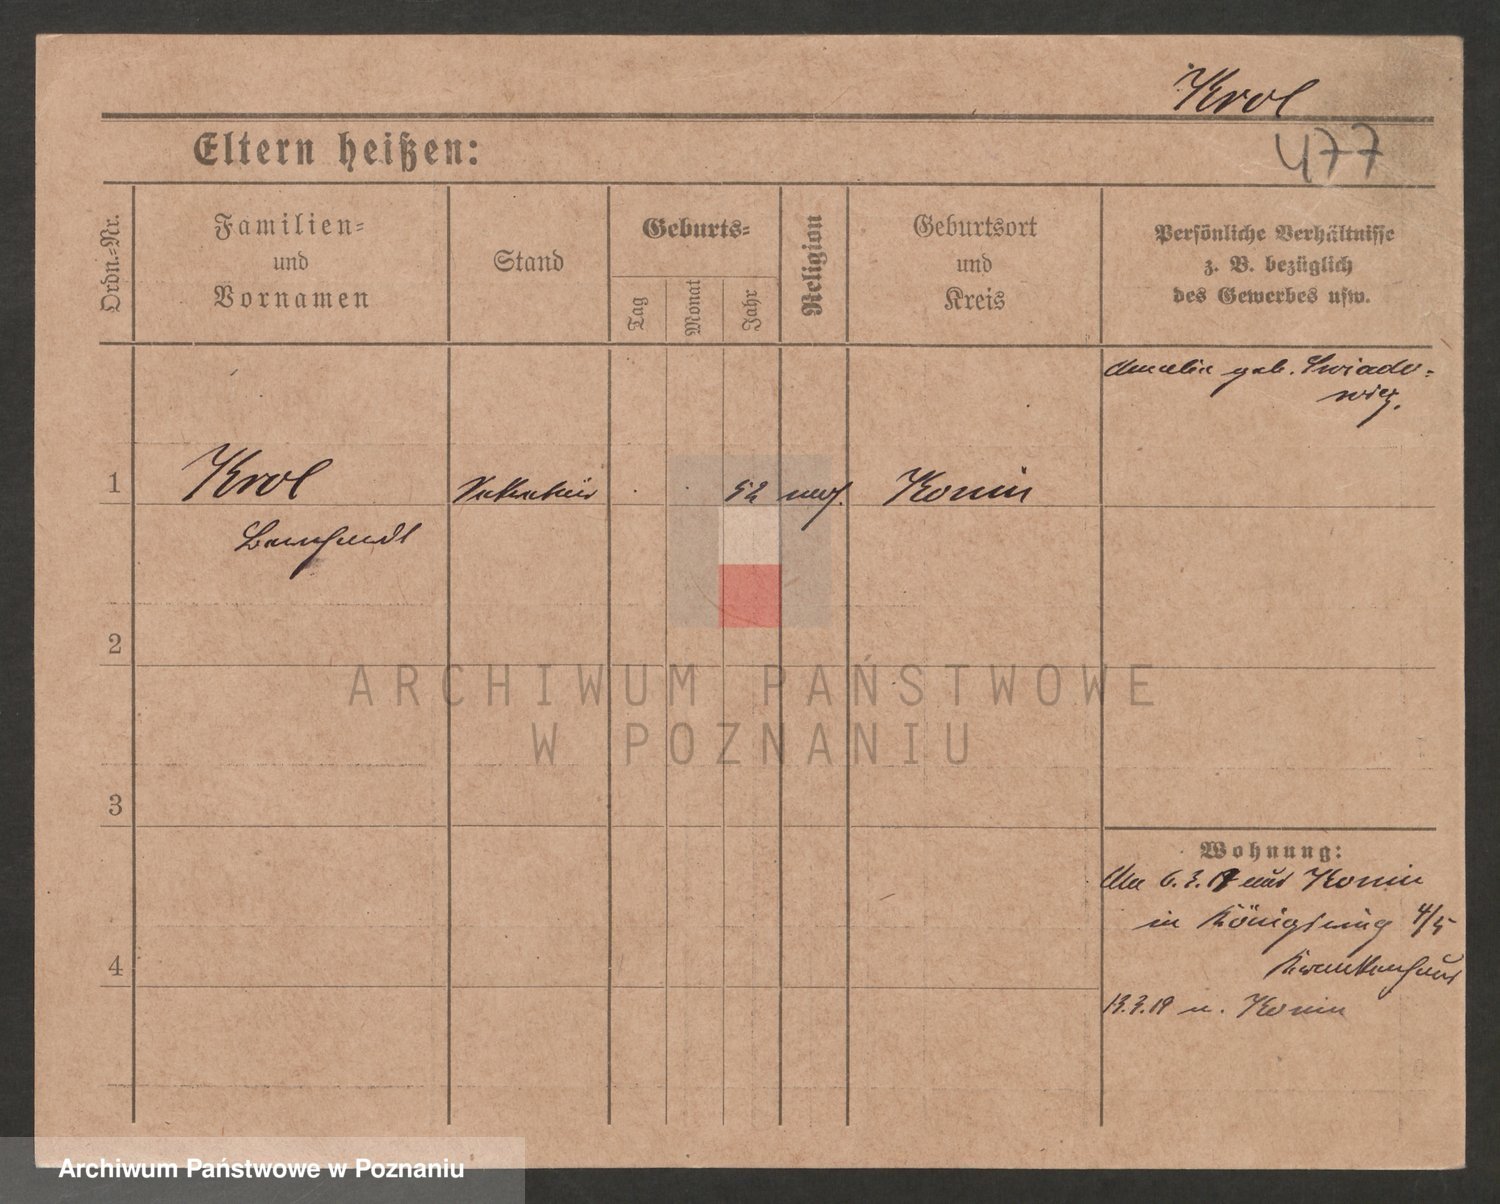 Krol
Eltern heißen:
477
Ordn.-Nr.
Familien-
und
Vornamen
Stand
Geburts-
Tag
Monat
Jahr
Religion
Geburtsort
und
Kreis
Persönliche Verhältnisse
z. B. bezüglich
des Gewerbes usw.
Amalie geb. Swiado-
wicz.
1
Krol
Sekretär
52
Konin
Bernhardt
2
ARCHIWUM PAŃSTWOWE
W POZNANIU
3
Wohnung:
Am 6.3.19 aus Konin
in Königsring 4/5
Krankenhaus
4
13.3.19 n. Konin
Archiwum Państwowe w Poznaniu